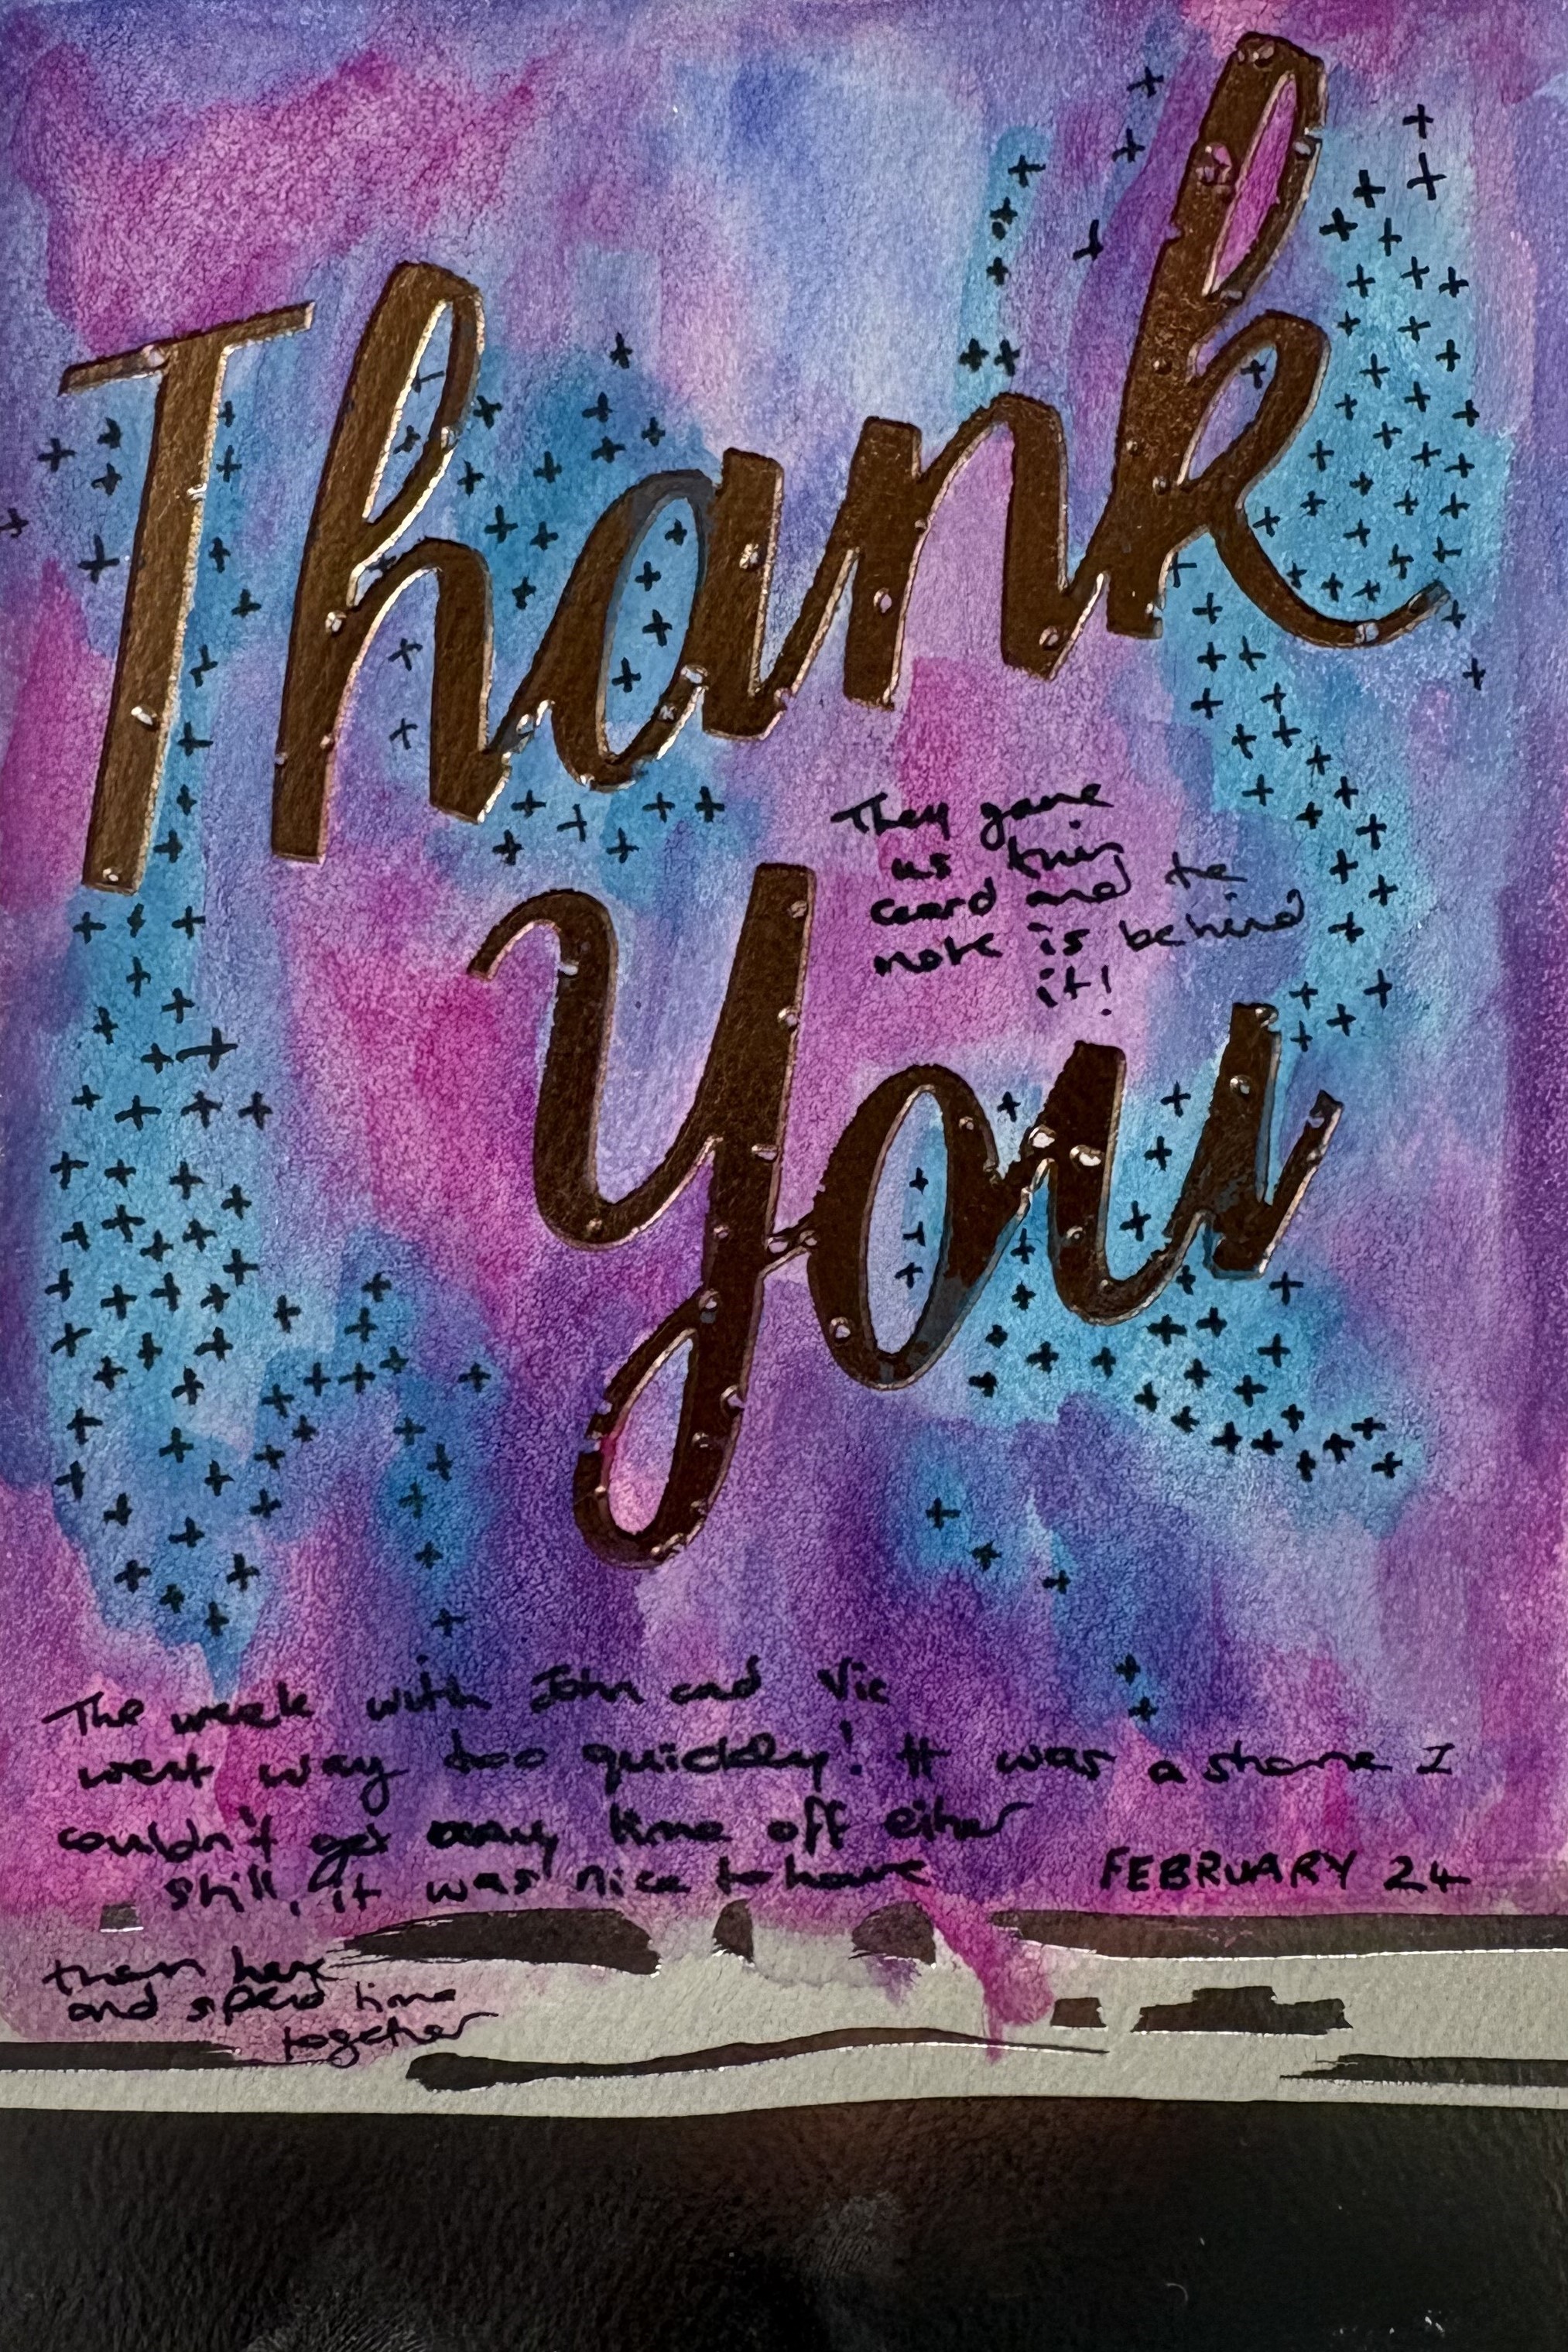 Thank
You
They gave
us this
card and the
note is behind
it!
The week with John and Vic
went way too quickly! It was a shame I
couldn't get any time off either
still, it was nice to have
FEBRUARY 24
them here
and spend time
together